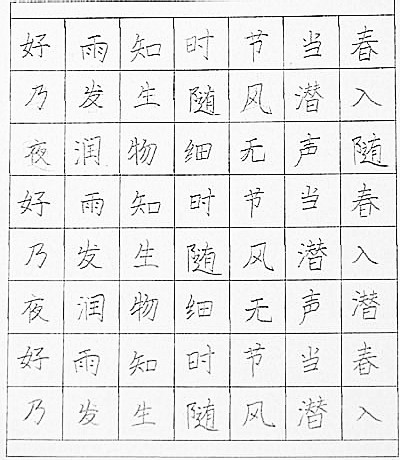 好雨知时节当春
乃发生随风潜入
夜润物细无声随
好雨知时节当春
乃发生随风潜入
夜润物细无声潜
好雨知时节当春
乃发生随风潜入